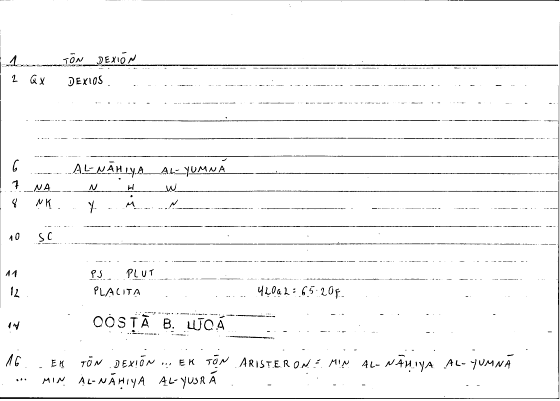 1 TŌN DEXIŌN
2 QX DEXIOS
6 AL-NĀḤIYA AL-YUMNĀ
7 NA N Ḥ W
8 NK Y M N
10 SC
11 PS PLUT
12 PLACITA 420a2=65.20f.
14 QOSṬĀ B. LŪQĀ
16 EK TŌN DEXIŌN ... EK TŌN ARISTERŌN = MIN AL-NĀḤIYA AL-YUMNĀ
... MIN AL-NĀḤIYA AL-YUSRĀ